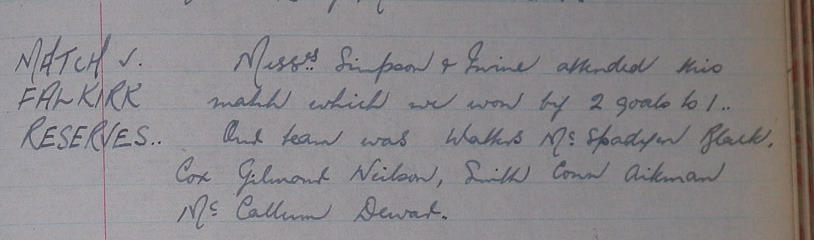 MATCH v. Messrs. Simpson & Irvine attended this
FALKIRK match which we won by 2 goals to 1..
RESERVES.. Our team was Walker Mc Spadyen Black,
Cox Gilmour Neilson, Smith Conn Aikman
Mc Callum Dewar.